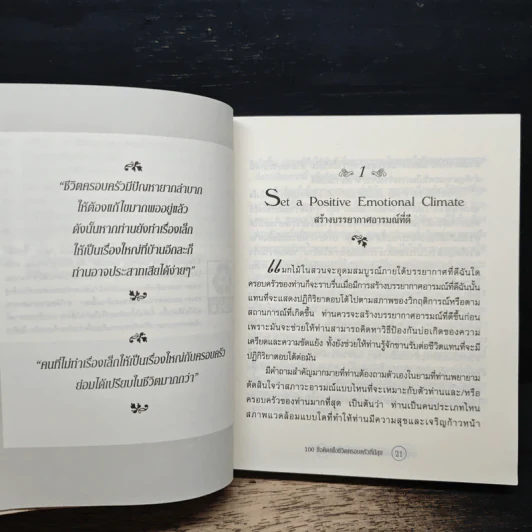 "ชีวิตครอบครัวมีปัญหายากลำบาก
ให้ต้องแก้ไขมากพออยู่แล้ว
ดังนั้นหากท่านยังทำเรื่องเล็ก
ให้เป็นเรื่องใหญ่ที่บ้านอีกละก็
ท่านอาจประสาทเสียได้ง่ายๆ"
"คนที่ไม่ทำเรื่องเล็กให้เป็นเรื่องใหญ่กับครอบครัว
ย่อมได้เปรียบในชีวิตมากกว่า"
1
Set a Positive Emotional Climate
สร้างบรรยากาศอารมณ์ที่ดี
แมกไม้ในสวนจะอุดมสมบูรณ์ภายใต้บรรยากาศที่ดีฉันใด
ครอบครัวของท่านก็จะราบรื่นเมื่อมีการสร้างบรรยากาศอารมณ์ที่ดีฉันนั้น
แทนที่จะแสดงปฏิกิริยาตอบโต้ไปตามสภาพของวิกฤติการณ์หรือตาม
สถานการณ์ที่เกิดขึ้น ท่านควรจะสร้างบรรยากาศอารมณ์ที่ดีขึ้นก่อน
เพราะมันจะช่วยให้ท่านสามารถคิดหาวิธีป้องกันบ่อเกิดของความ
เครียดและความขัดแย้ง ทั้งยังช่วยให้ท่านรู้จักขานรับต่อชีวิตแทนที่จะมี
ปฏิกิริยาตอบโต้ต่อมัน
มีคำถามสำคัญมากมายที่ท่านต้องถามตัวเองในยามที่ท่านพยายาม
ตัดสินใจว่าสภาวะอารมณ์แบบไหนที่จะเหมาะกับตัวท่านและ/หรือ
ครอบครัวของท่านมากที่สุด เป็นต้นว่า ท่านเป็นคนประเภทไหน
สภาพแวดล้อมแบบใดที่ทำให้ท่านมีความสุขและเจริญก้าวหน้า
100 ข้อคิดเพื่อชีวิตครอบครัวที่มีสุข 21